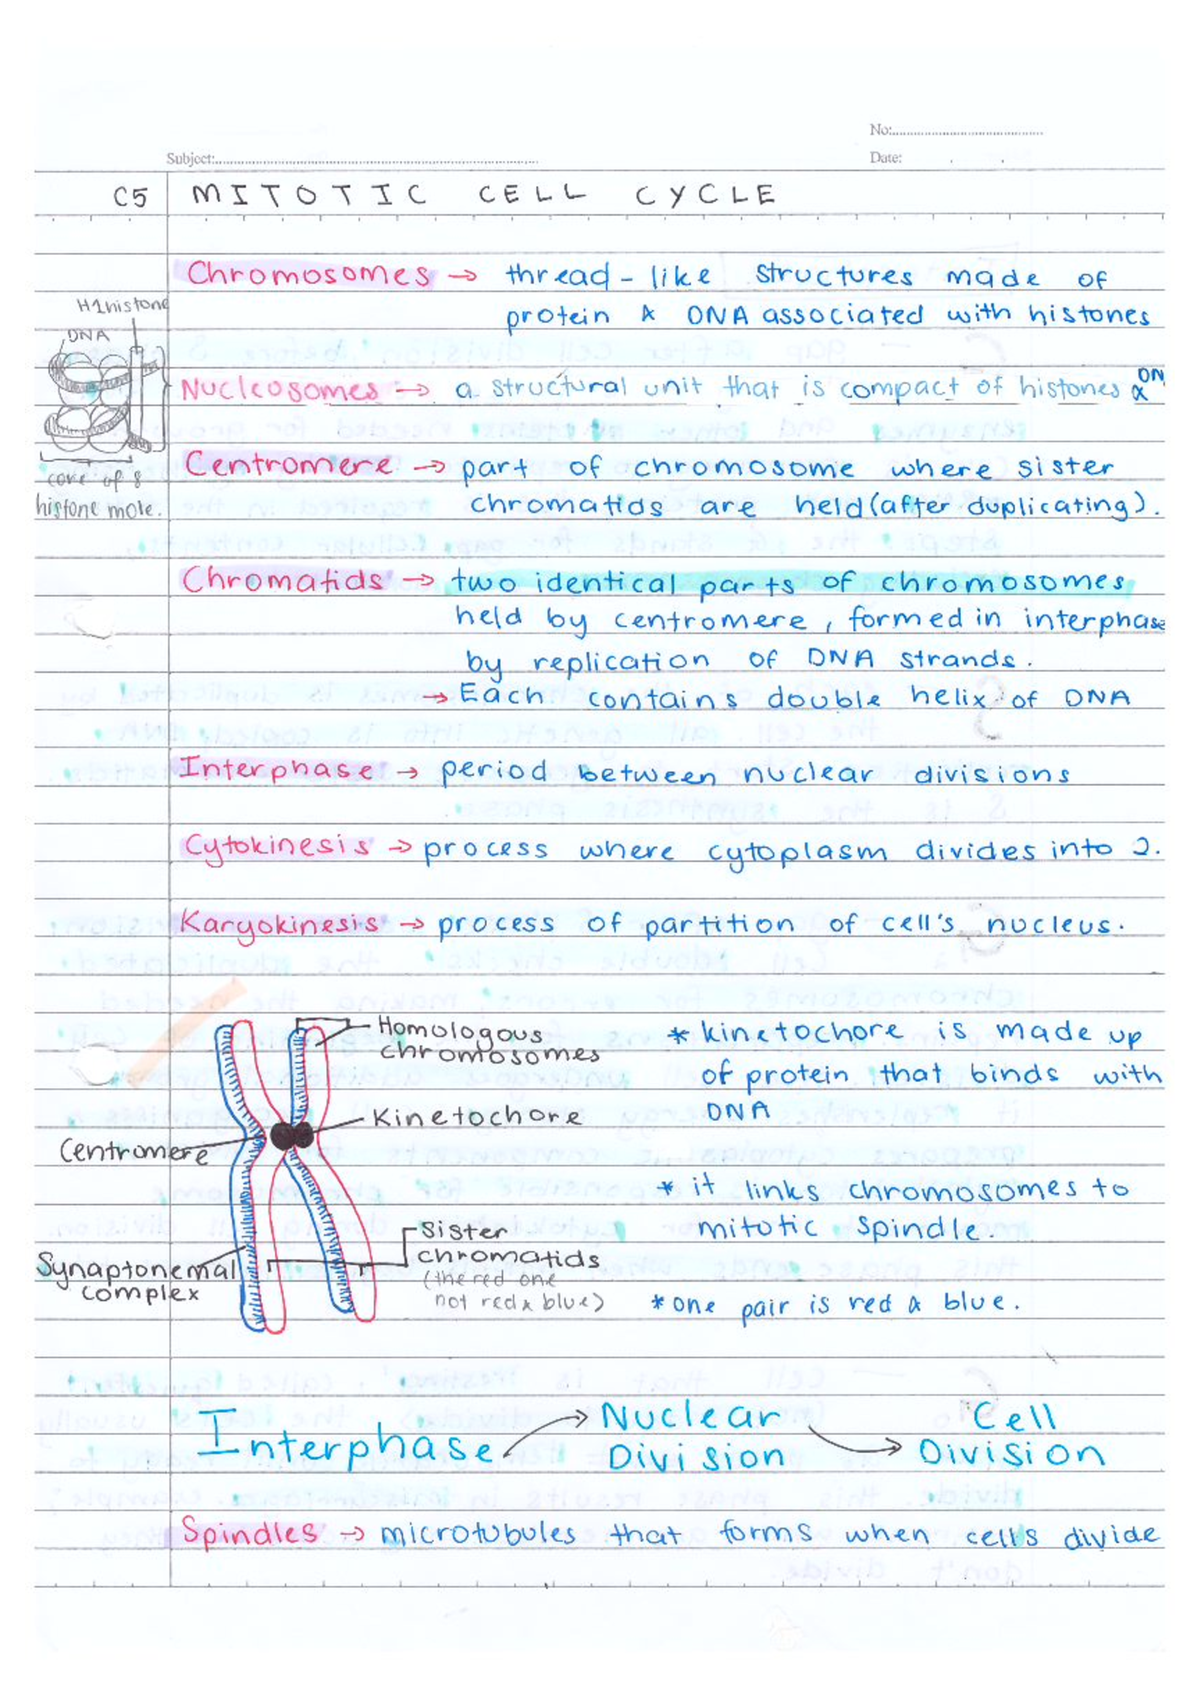 No:
Subject:
Date:
C5 MITOTIC CELL CYCLE
Chromosomes → thread-like structures made of
protein & DNA associated with histones
H1 histone
DNA
Nucleosomes → a structural unit that is compact of histones & DN
core of 8
histone mole.
Centromere → part of chromosome where sister
chromatids are held (after duplicating).
Chromatids → two identical parts of chromosomes
held by centromere, formed in interphase
by replication of DNA strands.
→ Each contains double helix of DNA
Interphase → period between nuclear divisions
Cytokinesis → process where cytoplasm divides into 2.
Karyokinesis → process of partition of cell's nucleus.
Homologous
chromosomes
Kinetochore
Centromere
Sister
chromatids
(the red one
not red & blue)
Synaptonemal
complex
* kinetochore is made up
of protein that binds with
DNA
* it links chromosomes to
mitotic spindle.
* one pair is red & blue.
Interphase → Nuclear Division → Cell Division
Spindles → microtubules that forms when cells divide